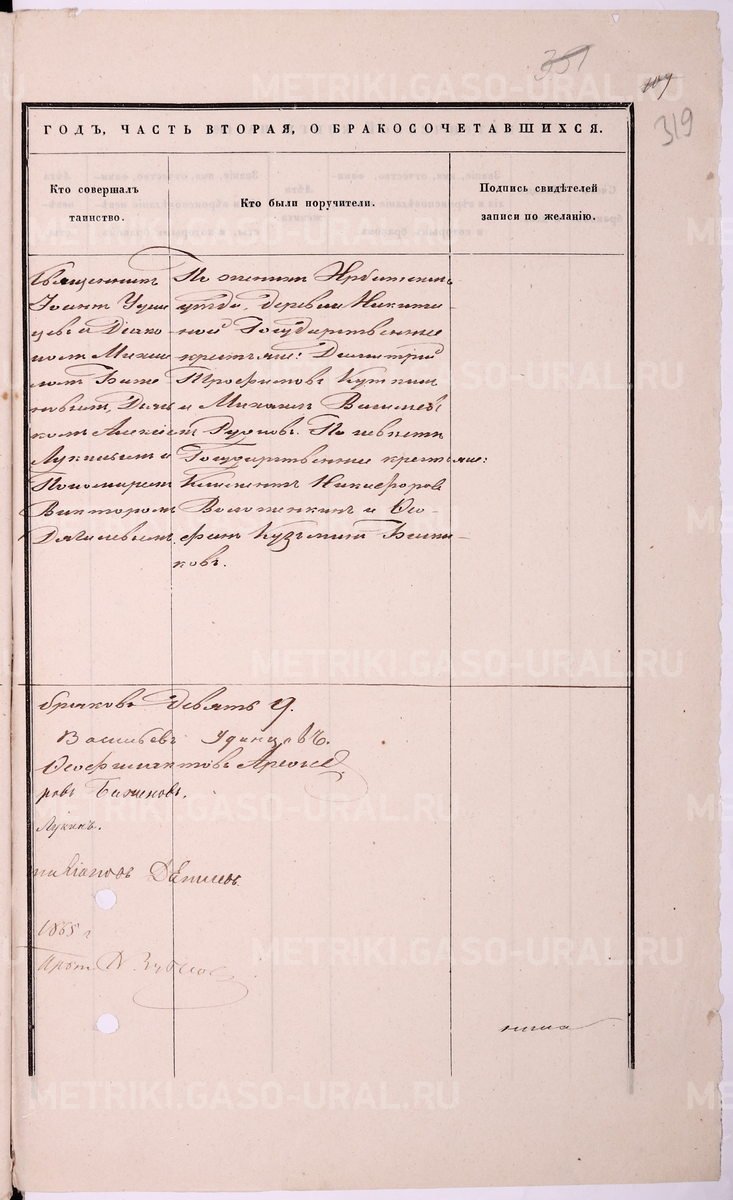 351
319
ГОДЪ, ЧАСТЬ ВТОРАЯ, О БРАКОСОЧЕТАВШИХСЯ.
Кто совершалъ
таинство.
Кто были поручители.
Подпись свидѣтелей
записи по желанію.
Священникъ
Іоаннъ Удин
цевъ и Діако
номъ Михаи
ломъ Баже
новымъ, Дьяч
комъ Алексѣемъ
Лукинымъ и
Пономаремъ
Викторомъ
Дягилевымъ.
По женихѣ Ирбитскаго
уѣзда, деревни Никити
ной Государственные
крестьяне: Димитрій
Трофимовъ
и Михаилъ Васильевъ
По невѣстѣ
Государственные крестьяне:
Климентъ Никифоровъ
и Ѳео
фанъ Кузьминъ
ковъ.
браковъ девять 9.
Васильевъ Удинцовъ.
Ѳеофилактовъ
ровъ Баженовъ.
Лукинъ.
1865 г
Прот.
METRIKI.GASO-URAL.RU